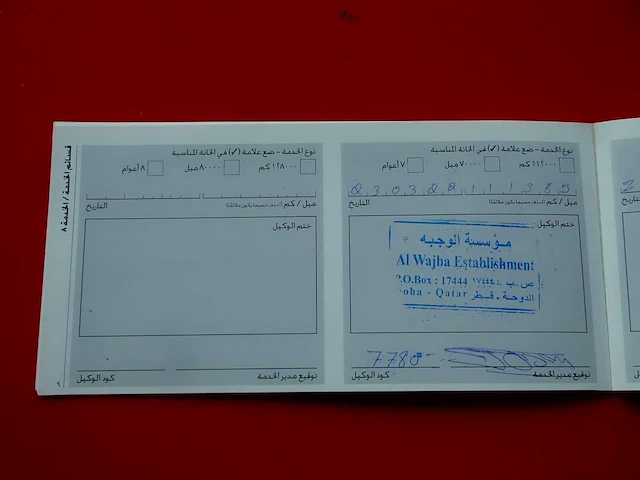 قسائم الخدمة / الخدمة ٨
نوع الخدمة - ضع علامة (✓) في الخانة المناسبة
١١٢٠٠٠ كم ٧٠٠٠٠ ميل ٧ أعوام
ميل / كم التاريخ
ختم الوكيل
مؤسسة الوجبه
Al Wajba Establishment
P.O.Box : 17444 ص.ب
oha - Qatar الدوحة - قطر
7780
توقيع مدير الخدمة كود الوكيل
نوع الخدمة - ضع علامة (✓) في الخانة المناسبة
١٢٨٠٠٠ كم ٨٠٠٠٠ ميل ٨ أعوام
ميل / كم التاريخ
ختم الوكيل
توقيع مدير الخدمة كود الوكيل